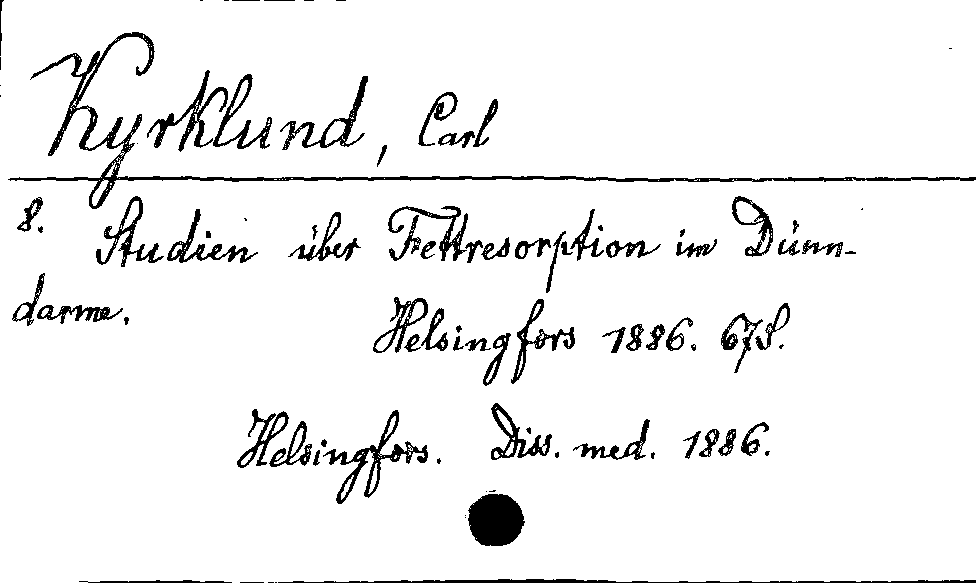 Kyrklund, Carl
8. Studien über Fettresorption im Dünn-
darme.
Helsingfors 1886. 67S.
Helsingfors. Diss. med. 1886.